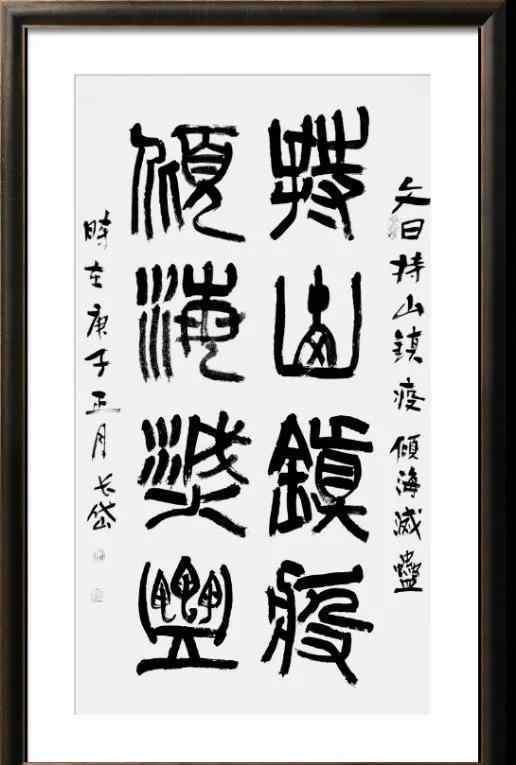 文曰持山鎮疫傾海滅蠱
持山鎮疫
傾海滅蠱
時在庚子正月長岱